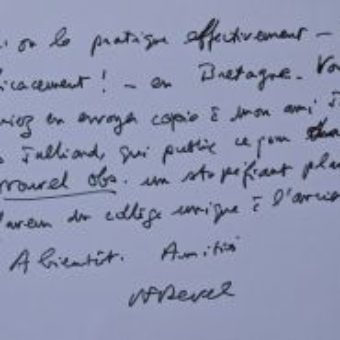 on le pratique effectivement —
icacement ! — en Bretagne. Vou
riez en envoyer copie à mon ami J
Julliard, qui publie ce jour dans
ouvel obs. un stupéfiant pla
aveu du collège unique à l'ancie
A bientôt. Amitiés
JFRevel